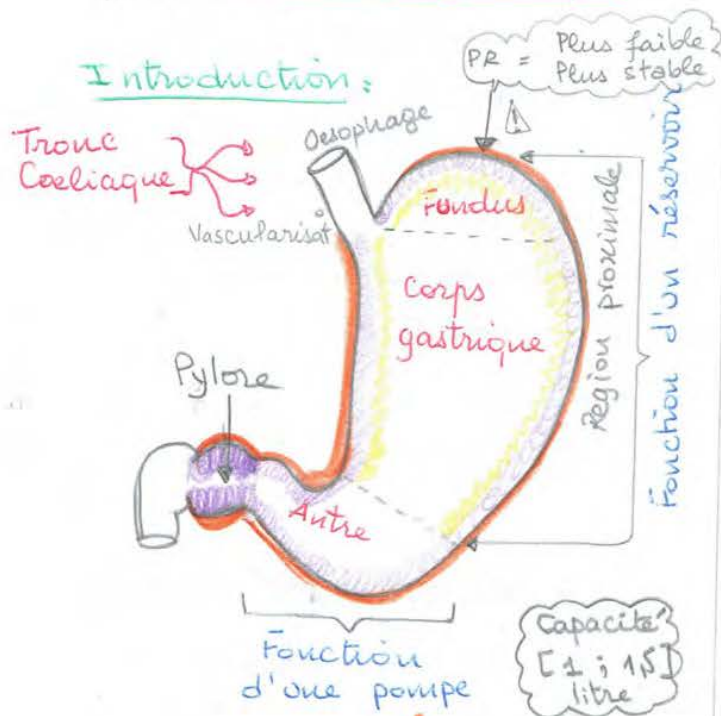 Introduction:
PR = Plus faible
Plus stable
⚠
Tronc
Coeliaque
Oesophage
Vascularisat°
Fundus
Corps
gastrique
Région proximale
Fonction d'un réservoir
Pylore
Antre
Fonction
d'une pompe
Capacité
[1 ; 1,5]
litre